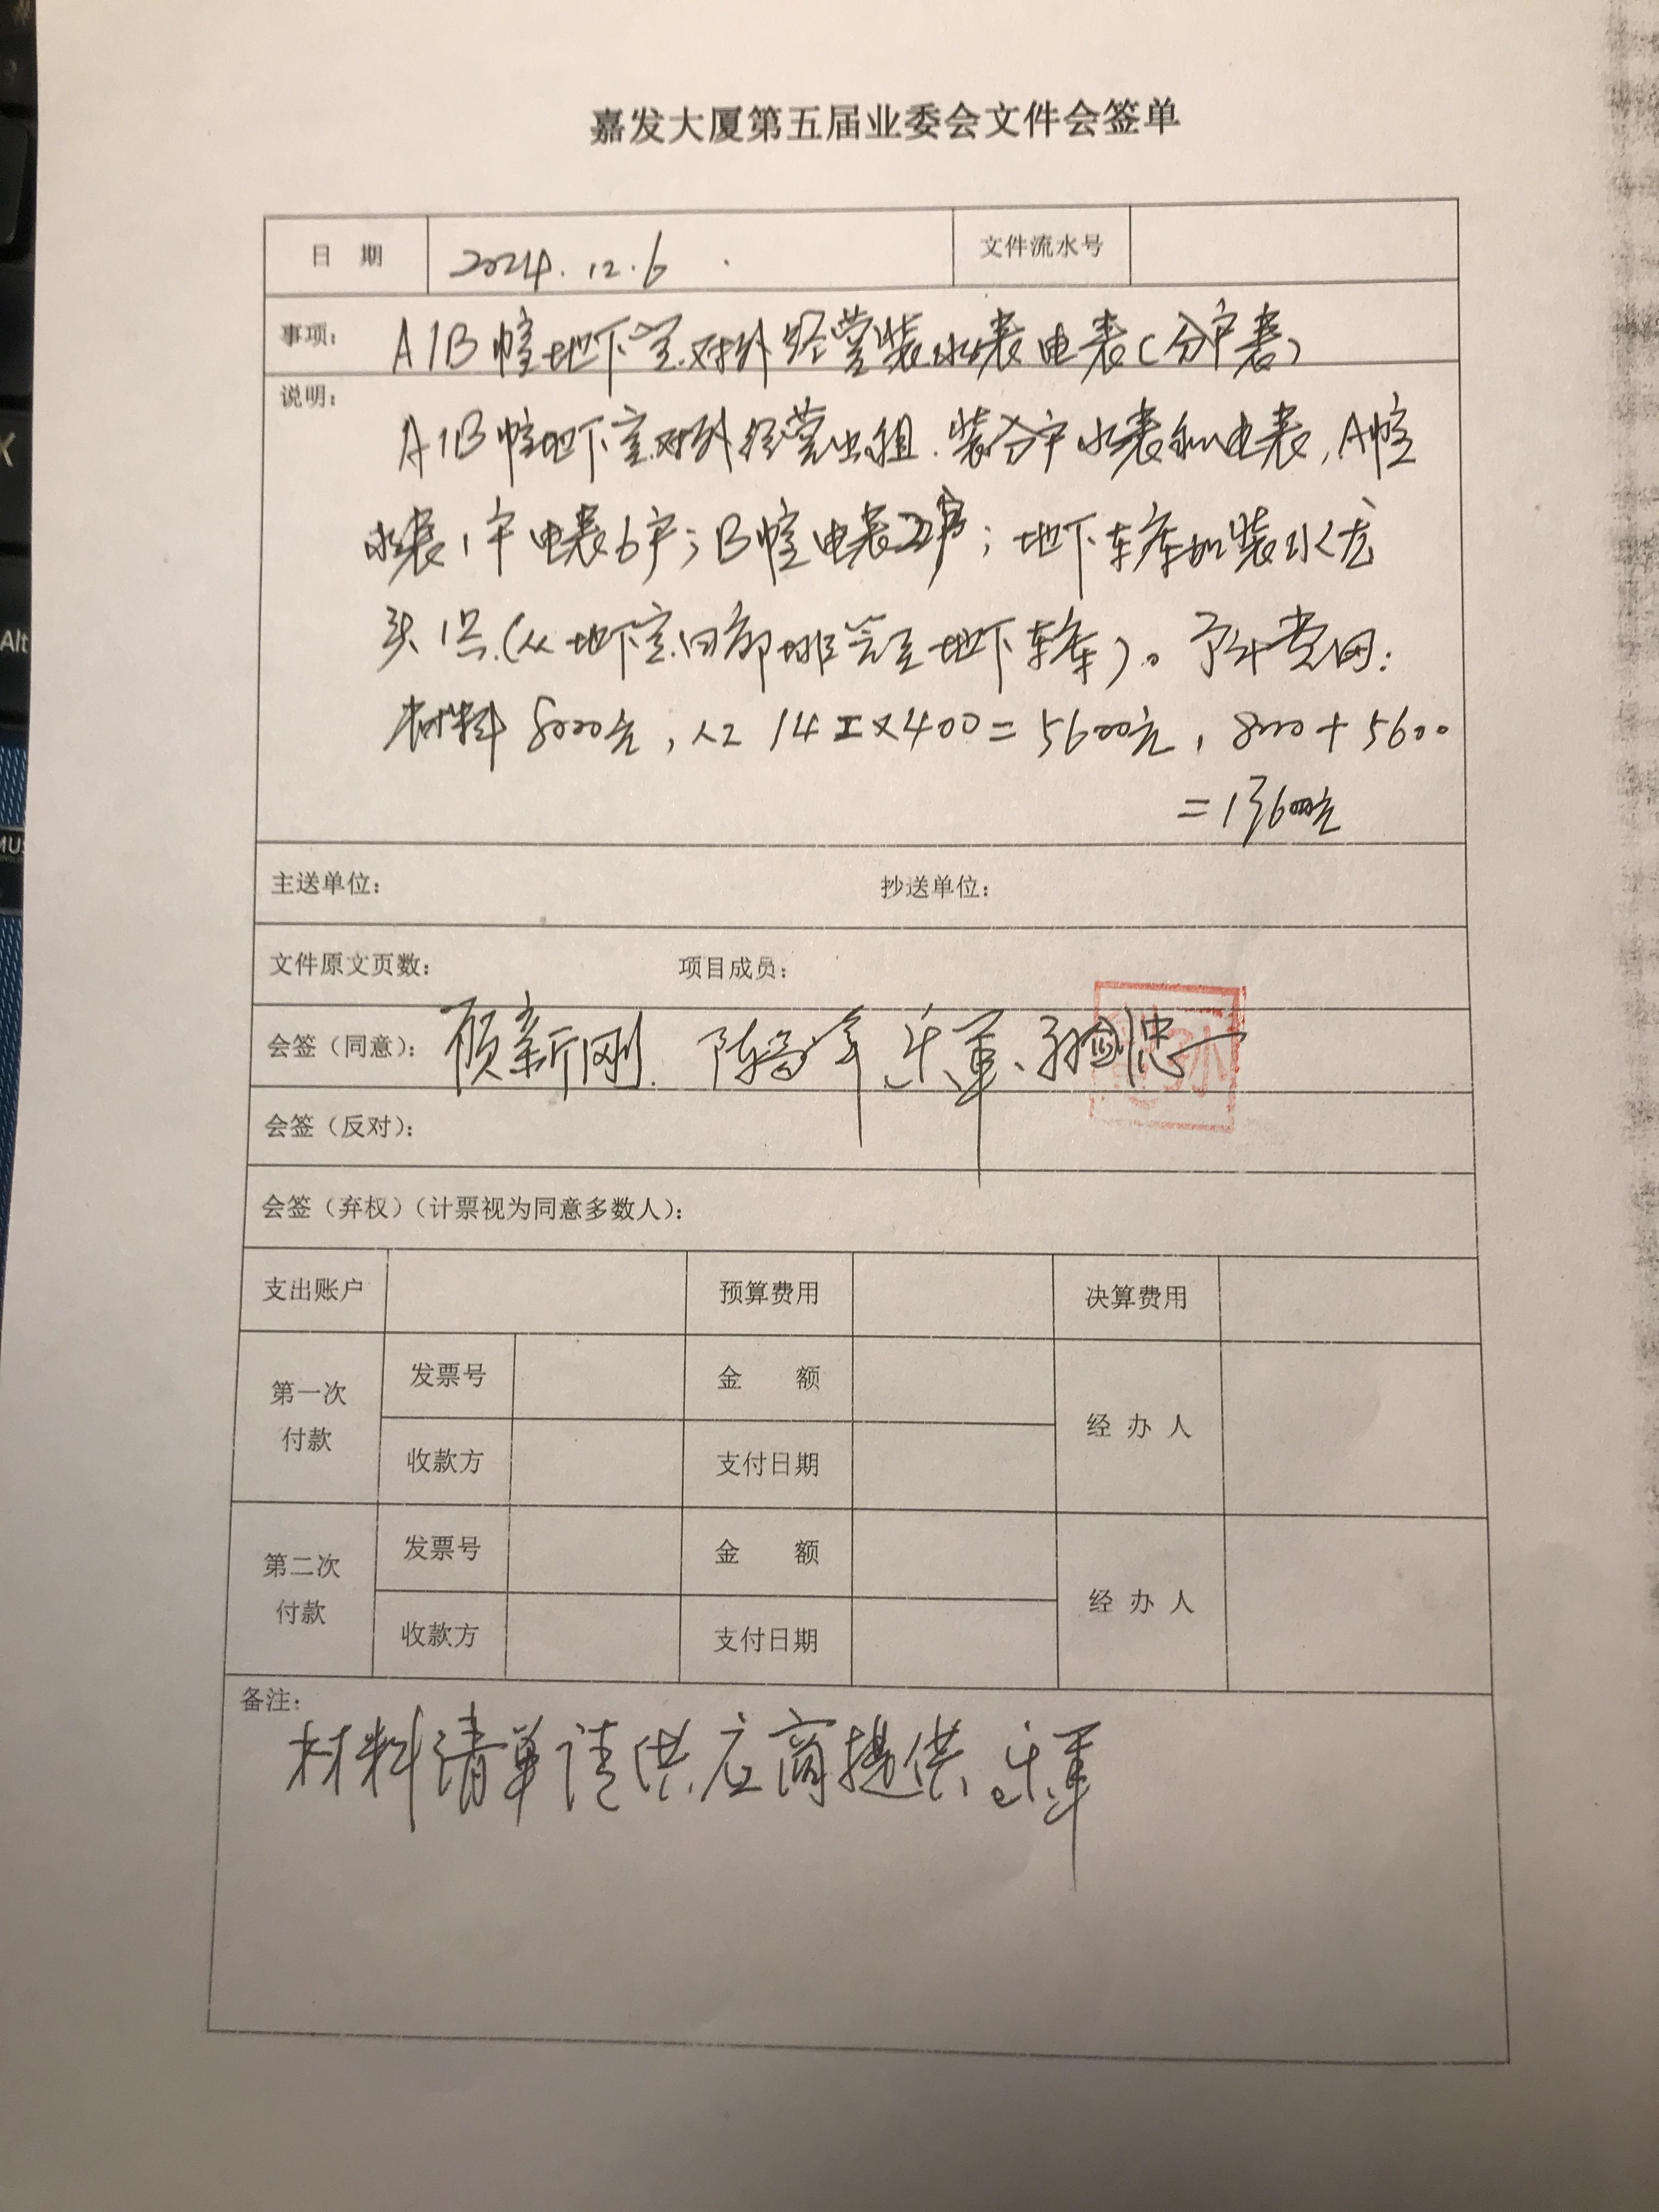 嘉发大厦第五届业委会文件会签单
日 期 2024.12.6 文件流水号
事项: A1B幢地下室对外经营装水表电表(分户表)
说明:
A1B幢地下室对外经营出租.装分户水表和电表,A幢
水表1户电表6户;B幢电表22户;地下车库加装水龙
头1只(从地下室内部排管至地下车库)。予计费用:
材料8000元,人工14工×400=5600元,8000+5600
=13600元
主送单位: 抄送单位:
文件原文页数: 项目成员:
会签(同意): 顾新刚.
会签(反对):
会签(弃权)(计票视为同意多数人):
支出账户 预算费用 决算费用
第一次付款 发票号 金 额 经 办 人
收款方 支付日期
第二次付款 发票号 金 额 经 办 人
收款方 支付日期
备注:
材料清单请供应商提供
Alt
X